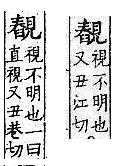 䚎
視不明也
又丑江切
䚎
視不明也一曰
直視又丑巷切